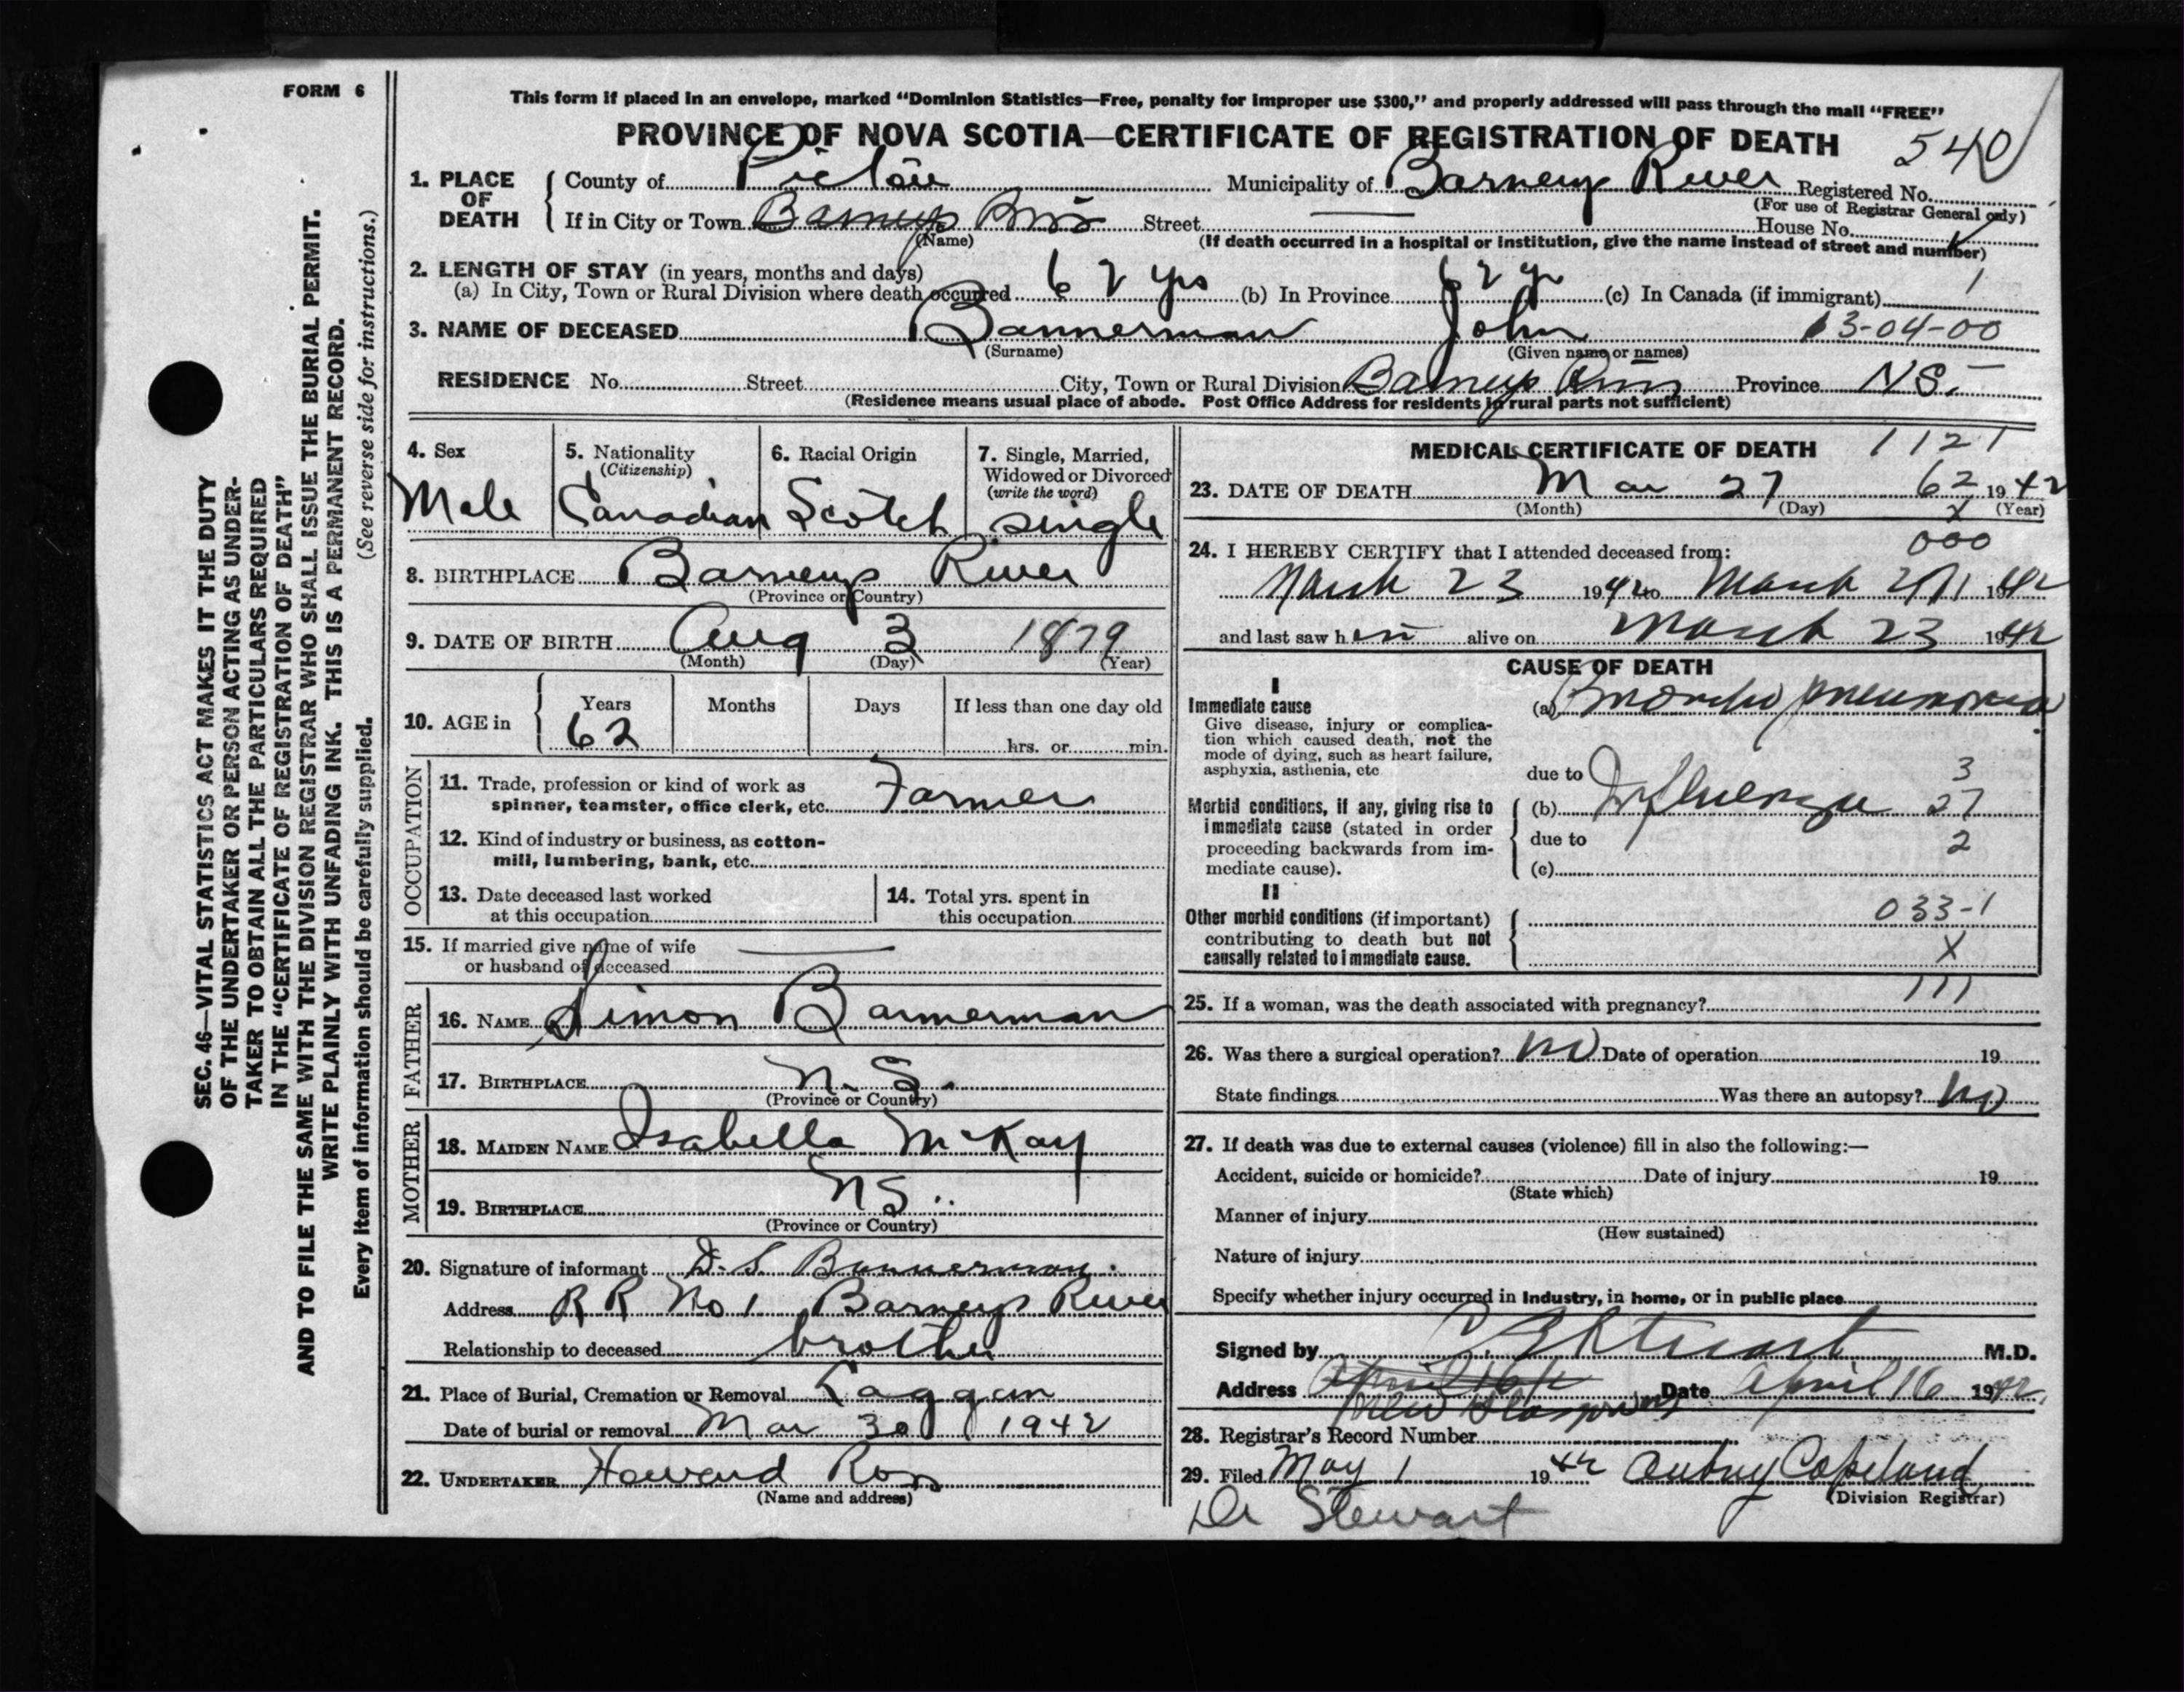 FORM 6
This form if placed in an envelope, marked "Dominion Statistics—Free, penalty for improper use $300," and properly addressed will pass through the mail "FREE"
PROVINCE OF NOVA SCOTIA—CERTIFICATE OF REGISTRATION OF DEATH
540
1. PLACE OF DEATH
County of Pictou Municipality of Barneys River Registered No.
(For use of Registrar General only)
If in City or Town Barneys River Street — House No.
(Name) (If death occurred in a hospital or institution, give the name instead of street and number)
2. LENGTH OF STAY (in years, months and days)
(a) In City, Town or Rural Division where death occurred 62 yrs (b) In Province 62 yr (c) In Canada (if immigrant) 1
3. NAME OF DECEASED Bannerman John 13-04-00
(Surname) (Given name or names)
RESIDENCE No. Street City, Town or Rural Division Barneys River Province NS.
(Residence means usual place of abode. Post Office Address for residents in rural parts not sufficient)
4. Sex 5. Nationality (Citizenship) 6. Racial Origin 7. Single, Married, Widowed or Divorced (write the word)
Male Canadian Scotch single
8. BIRTHPLACE Barneys River
(Province or Country)
9. DATE OF BIRTH Aug 3 1879
(Month) (Day) (Year)
10. AGE in Years Months Days If less than one day old
62 hrs. or min.
OCCUPATION
11. Trade, profession or kind of work as spinner, teamster, office clerk, etc. Farmer
12. Kind of industry or business, as cotton-mill, lumbering, bank, etc.
13. Date deceased last worked at this occupation
14. Total yrs. spent in this occupation
15. If married give name of wife or husband of deceased —
FATHER
16. NAME Simon Bannerman
17. BIRTHPLACE N.S.
(Province or Country)
MOTHER
18. MAIDEN NAME Isabella McKay
19. BIRTHPLACE NS
(Province or Country)
20. Signature of informant D. S. Bannerman
Address R R No 1 Barneys River
Relationship to deceased brother
21. Place of Burial, Cremation or Removal Laggan
Date of burial or removal Mar 30 1942
22. UNDERTAKER Howard Ross
(Name and address)
MEDICAL CERTIFICATE OF DEATH 1121
23. DATE OF DEATH Mar 27 62 1942
(Month) (Day) X (Year)
24. I HEREBY CERTIFY that I attended deceased from: 000
March 23 1942 to March 27 1942
and last saw him alive on March 23 1942
CAUSE OF DEATH
I
Immediate cause
Give disease, injury or complication which caused death, not the mode of dying, such as heart failure, asphyxia, asthenia, etc
(a) Broncho pneumonia
due to 3
Morbid conditions, if any, giving rise to immediate cause (stated in order proceeding backwards from immediate cause).
(b) Influenza 27
due to 2
(c)
II
Other morbid conditions (if important) contributing to death but not causally related to immediate cause.
033-1
X
25. If a woman, was the death associated with pregnancy? 111
26. Was there a surgical operation? no Date of operation 19
State findings Was there an autopsy? no
27. If death was due to external causes (violence) fill in also the following:—
Accident, suicide or homicide? Date of injury 19
(State which)
Manner of injury
(How sustained)
Nature of injury
Specify whether injury occurred in industry, in home, or in public place
Signed by Stewart M.D.
Address New Glasgow Date April 16 1942
28. Registrar's Record Number
29. Filed May 1 1942 Aubrey Copeland
(Division Registrar)
Dr Stewart
SEC. 46—VITAL STATISTICS ACT MAKES IT THE DUTY
OF THE UNDERTAKER OR PERSON ACTING AS UNDER-
TAKER TO OBTAIN ALL THE PARTICULARS REQUIRED
IN THE "CERTIFICATE OF REGISTRATION OF DEATH"
AND TO FILE THE SAME WITH THE DIVISION REGISTRAR WHO SHALL ISSUE THE BURIAL PERMIT.
WRITE PLAINLY WITH UNFADING INK. THIS IS A PERMANENT RECORD.
Every item of information should be carefully supplied. (See reverse side for instructions.)